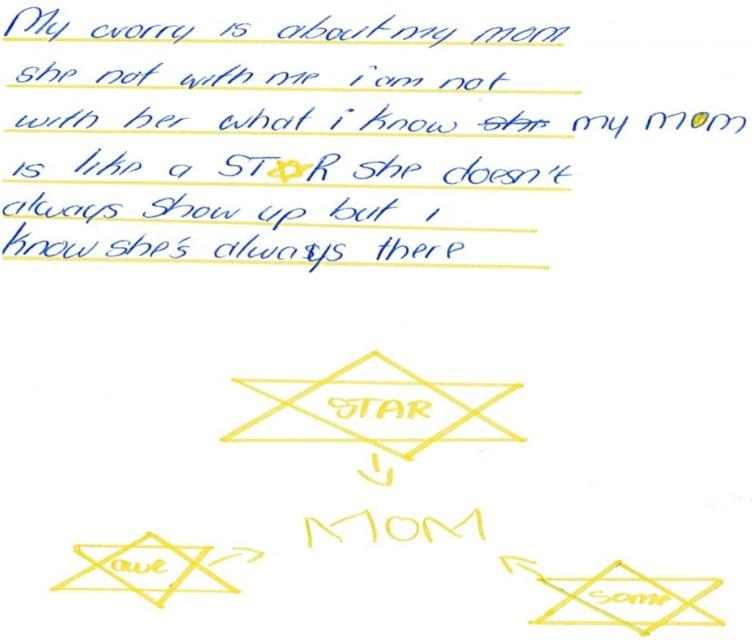 My worry is about my mom
she not with me i am not
with her what i know she my mom
is like a STAR she doesn't
always show up but i
know she's always there
STAR
MOM
awe
some